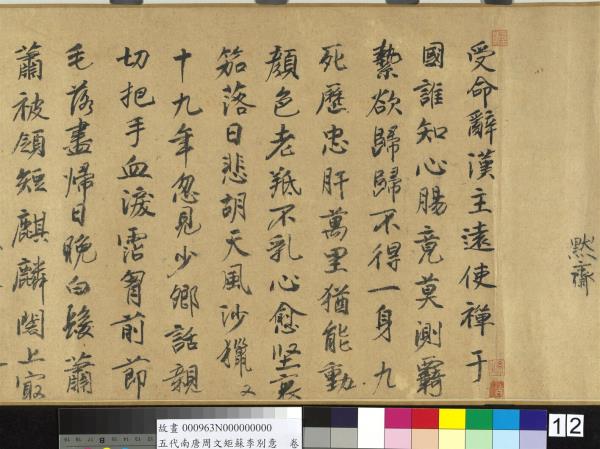 黙齋
受命辭漢主遠使禪于
國誰知心腸竟莫測羈
縶欲歸歸不得一身九
死歷忠肝萬里猶能動
顏色老羝不乳心愈堅哀
笳落日悲胡天風沙獵又
十九年忽見少卿話親
切把手血淚霑胷前節
毛落盡歸日晚白髮蕭
蕭被領短麒麟閣上
故畫 000963N000000000
五代南唐周文矩蘇李別意 卷
12